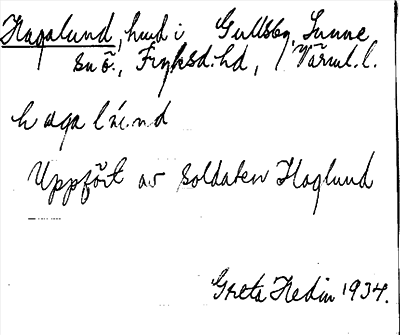 Hagalund, hmd i Gullsby, Sunne
sn ö., Fryksd. hd, Värml. l.
hagalu̇nd
Uppfört av soldaten Haglund
Greta Hedin 1934.